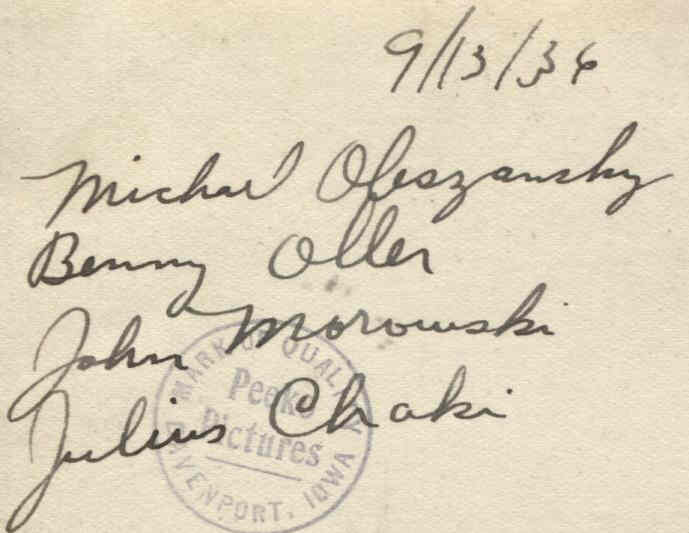 9/13/36
Michael Oleszansky
Benny Oller
John Morowski
Julius Chaki
MARK OF QUALITY
Peeks
Pictures
DAVENPORT, IOWA